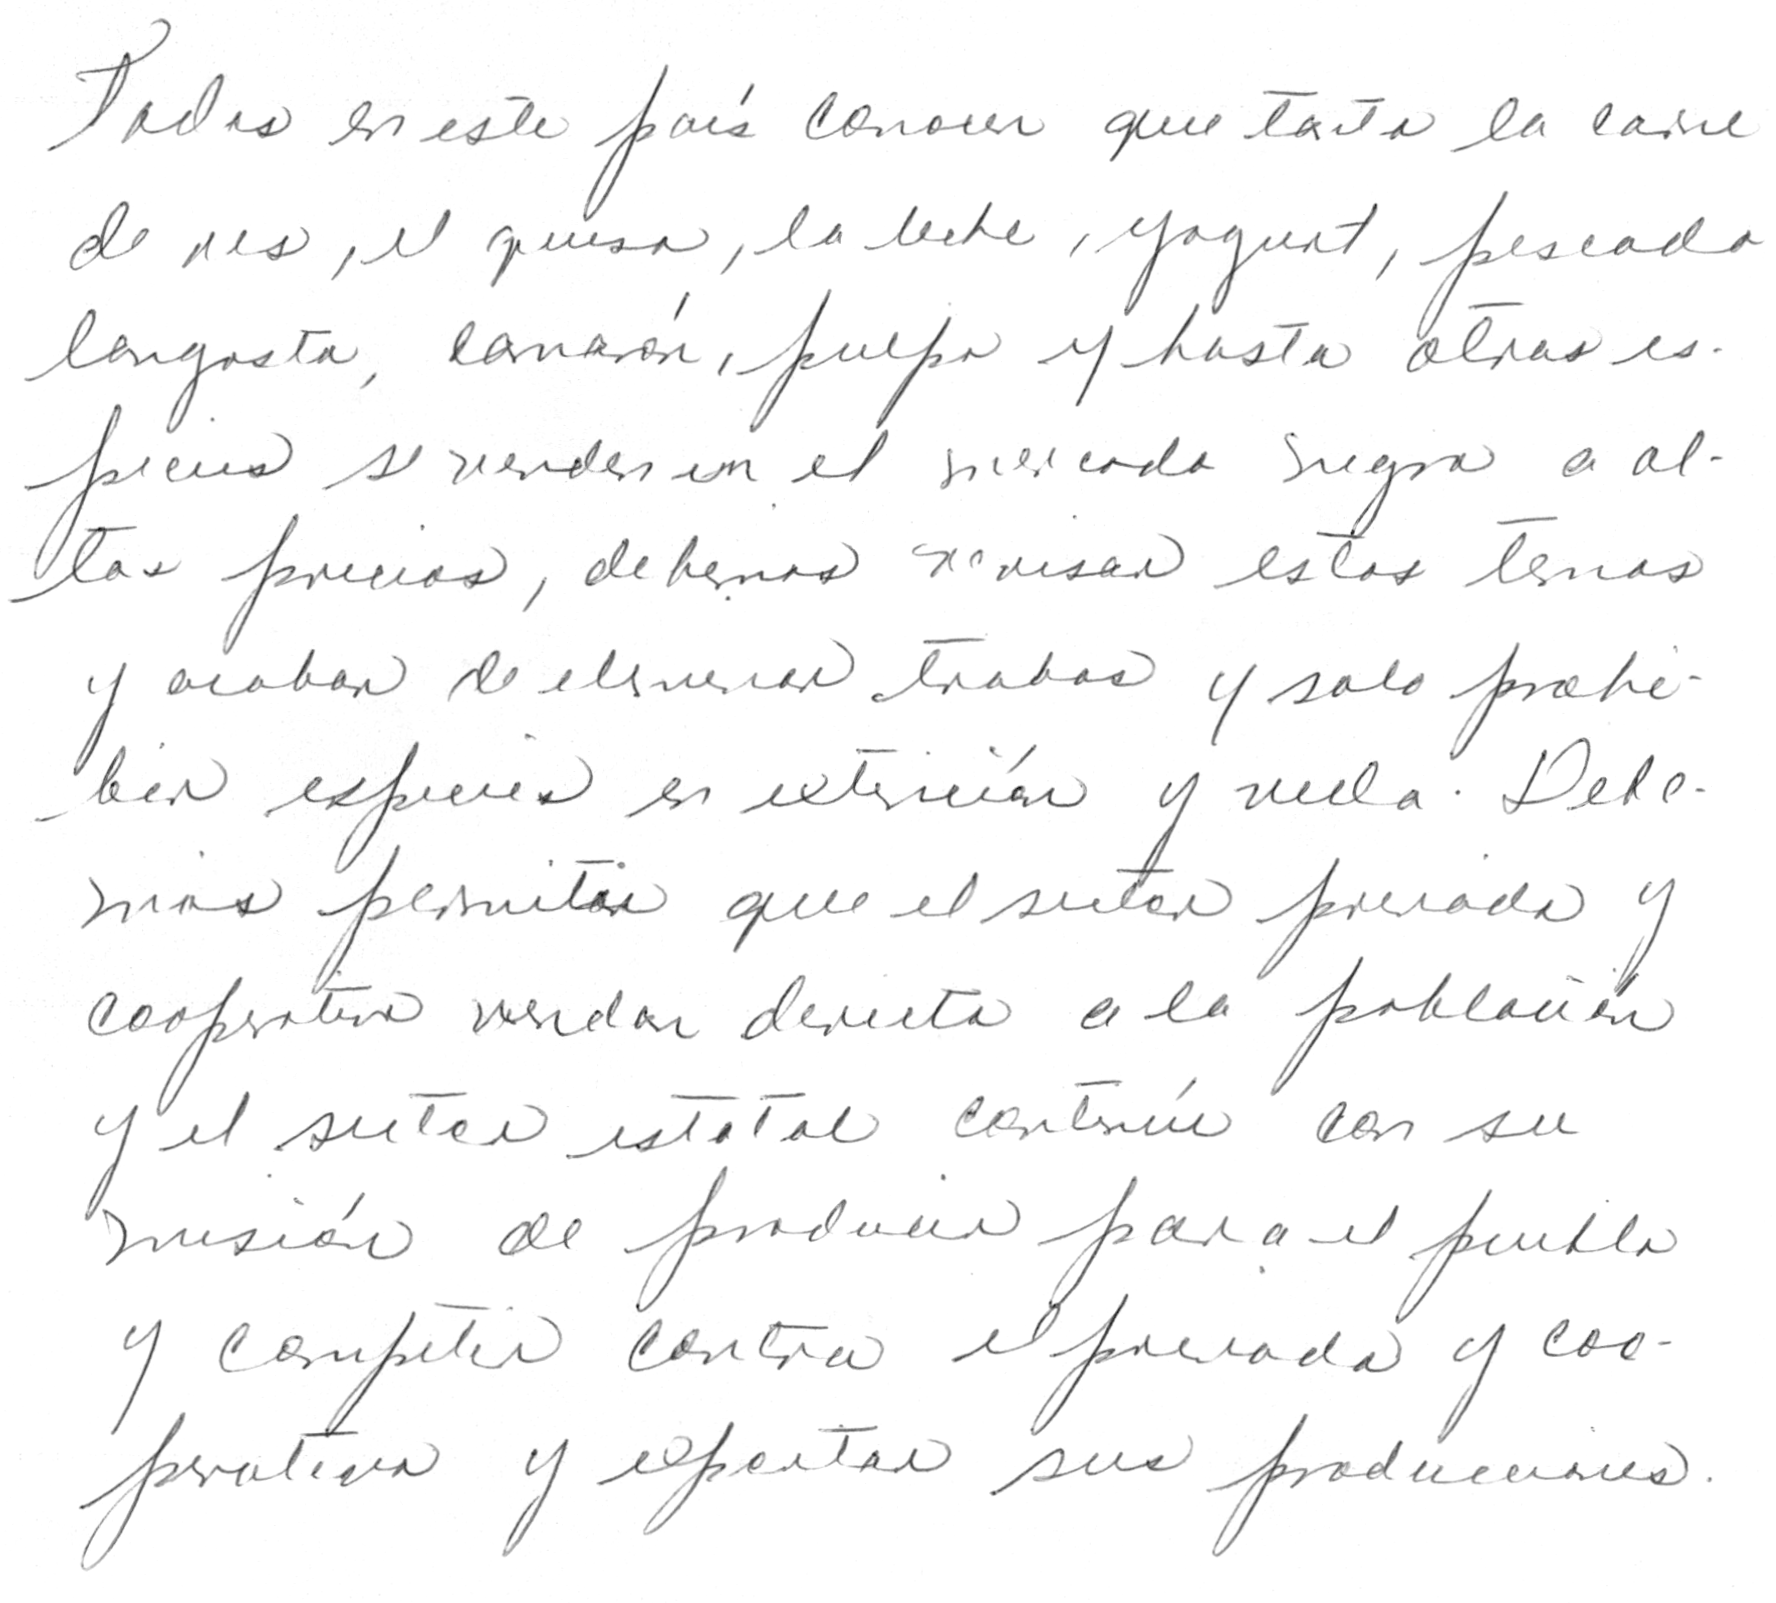 Todos en este país conocen que tanto la carne
de res, el queso, la leche, yogurt, pescado
langosta, camarón, pulpo y hasta otras es-
pecies se venden en el mercado negro a al-
tos precios, debemos revisar estos temas
y acabar de eliminar trabas y solo prohi-
bir especies en extención y veda. Debe-
mos permitir que el sector privado y
cooperativo vendan directo a la población
y el sector estatal continúe con su
misión de producir para el pueblo
y competir contra el privado y coo-
perativo y exportar sus producciones.